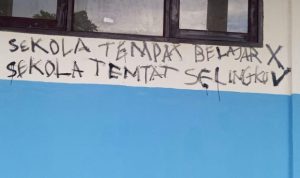 SEKOLA TEMPAT BELAJAR X
SEKOLA TEMTAT SELINGKU V